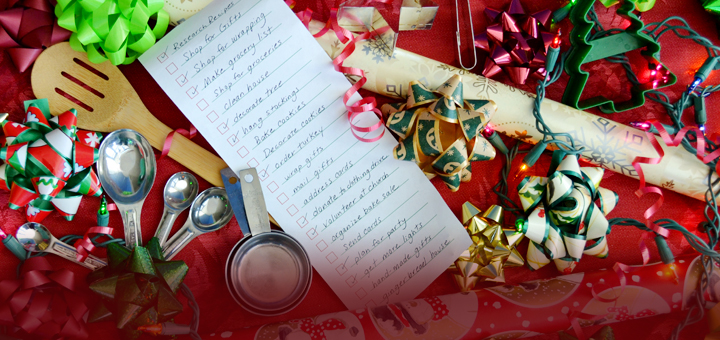 Research Recipes
Shop for Gifts
Shop for wrapping
Make grocery list
Shop for groceries
clean house
decorate tree
hang stockings
Bake cookies
Decorate cookies
order turkey
wrap gifts
mail gifts
address cards
donate to clothing drive
volunteer at church
organize bake sale
send cards
plan for party
get more lights
handmade gifts
gingerbread house